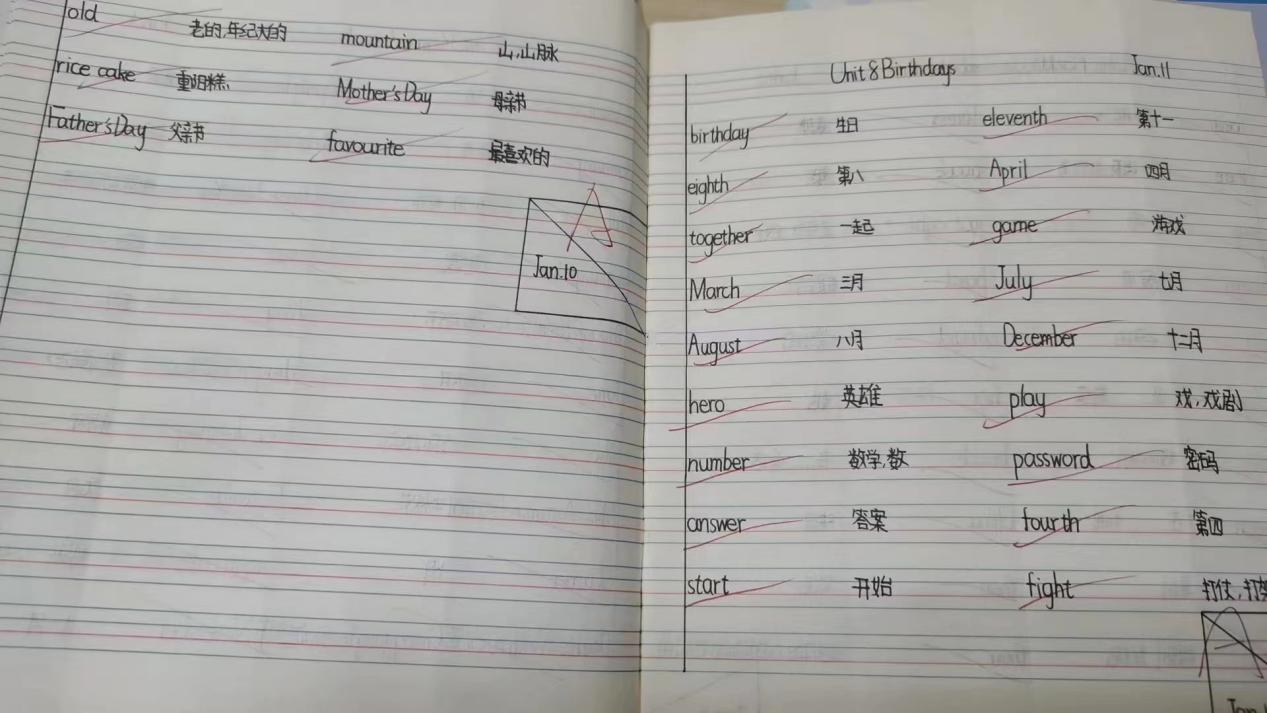 old 老的,年纪大的 mountain 山,山脉
rice cake 重阳糕 Mother's Day 母亲节
Father's Day 父亲节 favourite 最喜欢的
A
Jan.10
Unit 8 Birthdays Jan.11
birthday 生日 eleventh 第十一
eighth 第八 April 四月
together 一起 game 游戏
March 三月 July 七月
August 八月 December 十二月
hero 英雄 play 戏,戏剧
number 数字,数 password 密码
answer 答案 fourth 第四
start 开始 fight 打仗,打